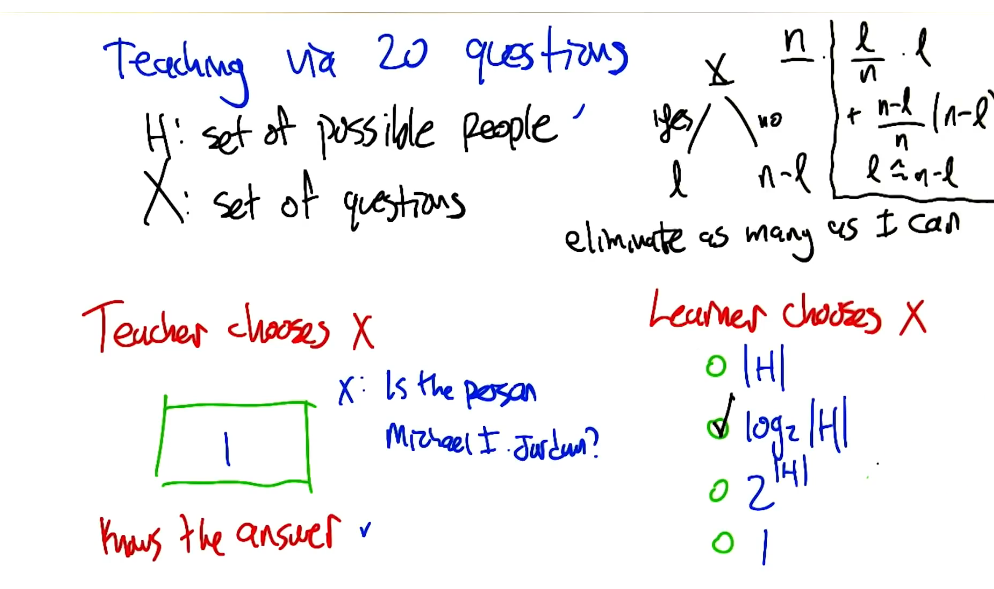 Teaching via 20 questions
H: set of possible people
X: set of questions
X
yes no
l n-l
n
l/n · l
+ n-l/n (n-l
l ≈ n-l
eliminate as many as I can
Teacher chooses X
1
X: Is the person
Michael I. Jordan?
Knows the answer
Learner chooses X
|H|
✓ log₂ |H|
2^|H|
1